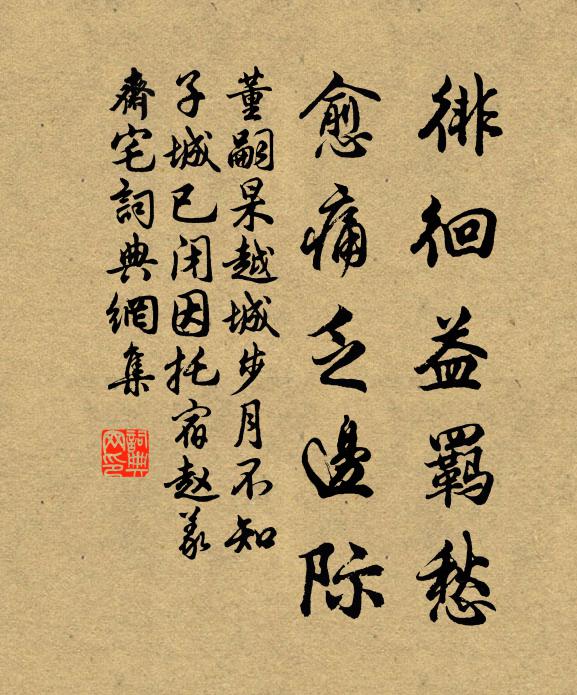 徘徊益羁愁
愈痛乏邊际
董嗣杲越城步月不知
子城已闭因托宿赵義
齋宅詞典網集
詞典網印